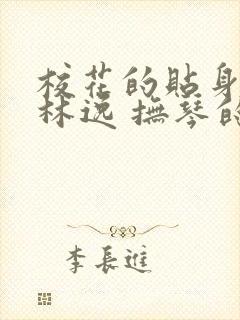 校花的貼身
林逸 撫琴的
李長進